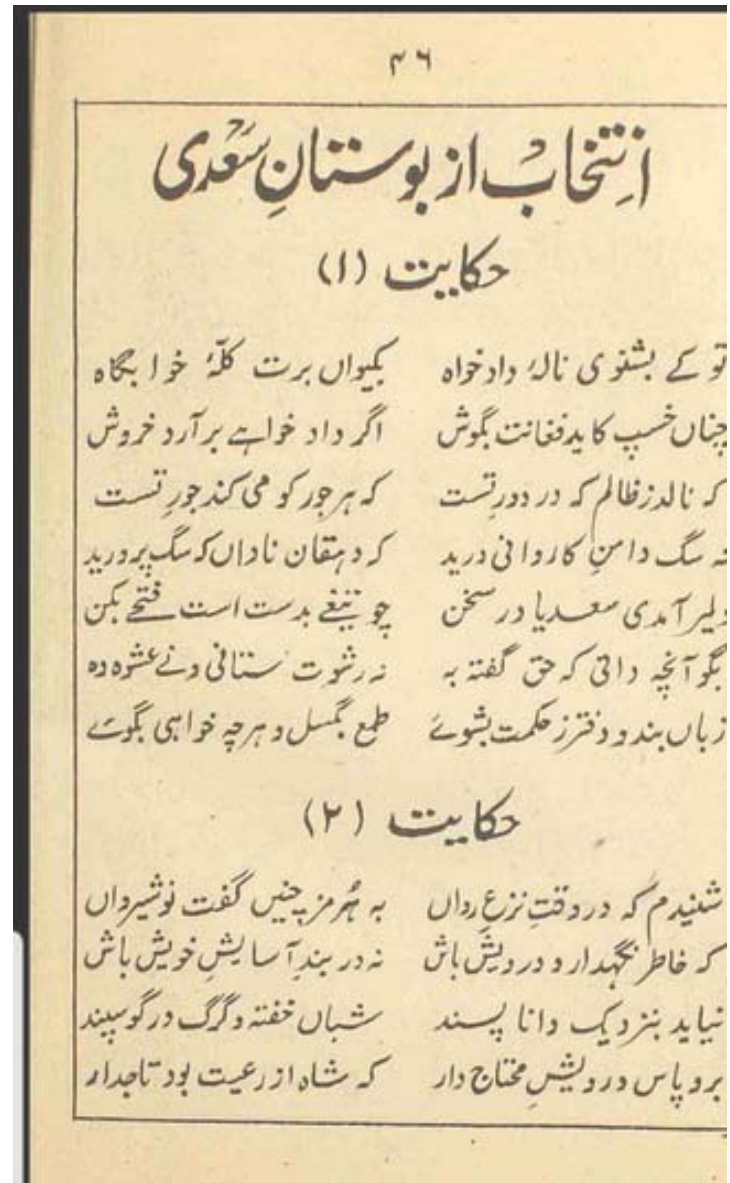 ۴۶
انتخاب از بوستانِ سَعْدی
حکایت (۱)
تو کے بشنوی نالۂ داد خواہ بکیواں برت کلّۂ خوابگاہ
چناں خسپ کاید فغانت بگوش اگر داد خواہے برآرد خروش
کہ نالد ز ظالم کہ در دورِ تست کہ ہر جور کو می کند جورِ تست
نہ سگ دامنِ کاروانی درید کہ دہقان ناداں کہ سگ پرورید
دلیر آمدی سعدیا در سخن چو تیغے بدست است فتحے بکن
بگو آنچہ دانی کہ حق گفتہ بہ نہ رشوت ستانی و نے عشوہ دہ
زباں بند و دفتر ز حکمت بشوے طمع بگسل و ہرچہ خواہی بگوے
حکایت (۲)
شنیدم کہ در وقتِ نزعِ رواں بہ ہُرمز چنیں گفت نوشیرواں
کہ خاطر نگہدار و درویش باش نہ در بندِ آسایشِ خویش باش
نیاید بنزدیک دانا پسند شباں خفتہ و گرگ در گوسپند
برو پاس درویشِ محتاج دار کہ شاہ از رعیت بود تاجدار